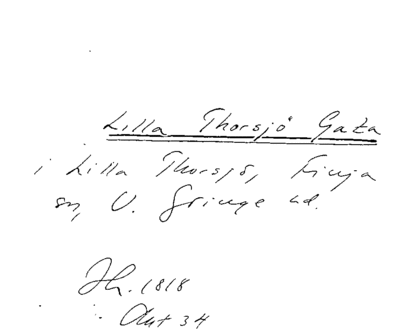 Lilla Thorsjö Gata
i Lilla Thorsjö, Finja
sn, V. Göinge hd.
Jh. 1818
Akt 34